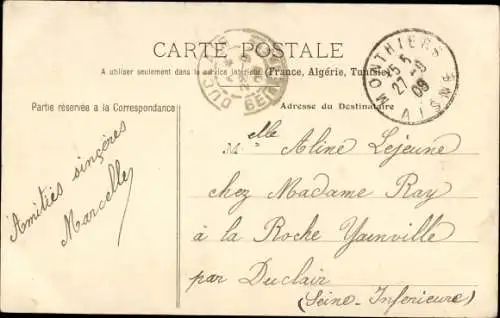 CARTE POSTALE
A utiliser seulement dans le service intérieur (France, Algérie, Tunisie)
Partie réservée a la Correspondance
Adresse du Destinataire
MONTHIERS
15 5
27 -9
09
AISNE
Amitiés sinçères
Marcelle
Melle Aline Lejeune
chez Madame Ray
à la Roche Yainville
par Duclair
(Seine-Inférieure)